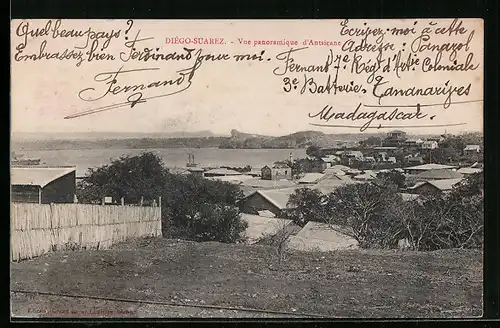 Quel beau pays?
Embrassez bien Ferdinand pour moi.
Fernand
DIÉGO-SUAREZ. - Vue panoramique d'Antsirane
Ecrivez-moi à cette
Adresse: Panazol
Fernand 7e Régt d'Arte Coloniale
3e Batterie. Tananarives
Madagascar.